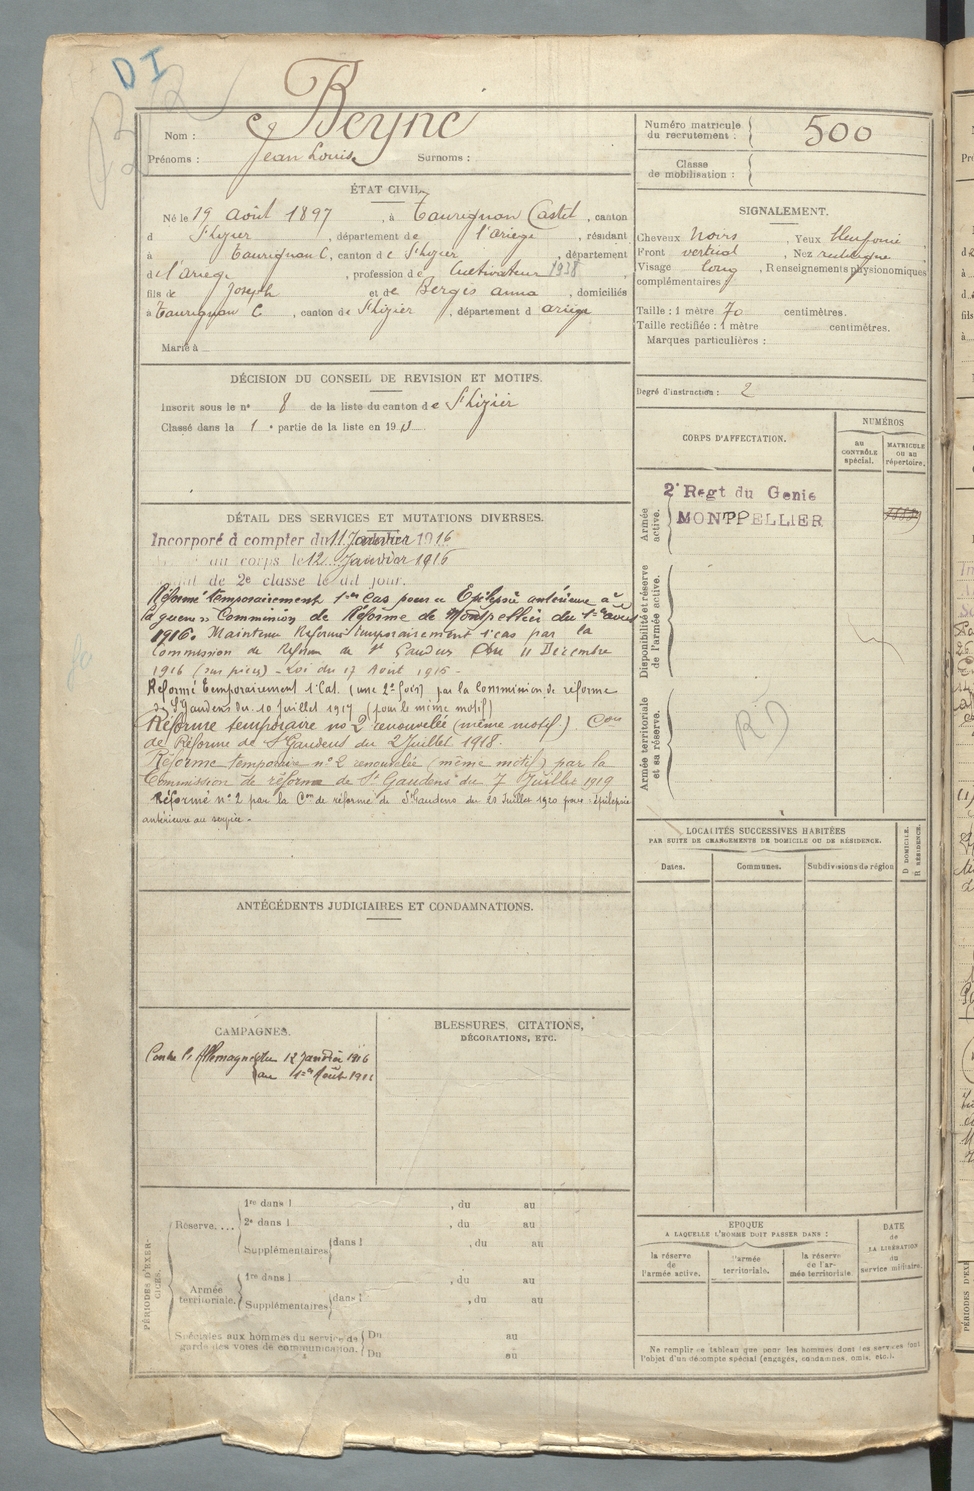 D I
Nom : Beyne
Prénoms : Jean Louis Surnoms :
Numéro matricule du recrutement : 500
Classe de mobilisation :
ÉTAT CIVIL.
Né le 19 août 1897, à Taurignan Castet, canton
d St Lizier, département de l'ariege, résidant
à Taurignan C, canton de St Lizier, département
de l'ariege, profession de Cultivateur 1938
fils de Joseph et de Bergès anna, domiciliés
à Taurignan C, canton de St Lizier, département d ariège
Marié à
SIGNALEMENT.
Cheveux noirs, Yeux
Front vertical, Nez rectiligne
Visage long, Renseignements physionomiques
complémentaires :
Taille : 1 mètre 70 centimètres.
Taille rectifiée : 1 mètre centimètres.
Marques particulières :
Degré d'instruction : 2
DÉCISION DU CONSEIL DE REVISION ET MOTIFS.
Inscrit sous le n° 8 de la liste du canton de St Lizier
Classé dans la 1e partie de la liste en 19
CORPS D'AFFECTATION.
NUMÉROS
au CONTRÔLE spécial.
MATRICULE OU AU répertoire.
Armée active.
2e Regt du Genie
MONTPELLIER
Disponibilité et réserve de l'armée active.
Armée territoriale et sa réserve.
R D
DÉTAIL DES SERVICES ET MUTATIONS DIVERSES.
Incorporé à compter du 11 Janvier 1916
au corps le 12 Janvier 1916
de 2e classe le dit jour.
Réformé temporairement 1er Cas pour « Epilepsie antérieure à
la guerre » Commission de Réforme de Montpellier du 1er août
1916. Maintenu Réformé temporairement 1er cas par la
Commission de Réforme de St Gaudens du 11 Décembre
1916 (sur pièces) - Loi du 17 Août 1915 -
Réformé Temporairement 1e Cat. (une 2e fois) par la Commission de réforme
de St Gaudens du 10 Juillet 1917 (pour le même motif)
Réforme temporaire no 2 renouvelée (même motif) Con
de Réforme de St Gaudens du 2 Juillet 1918.
Réforme temporaire n° 2 renouvelée (même motif) par la
Commission de réforme de St Gaudens du 7 Juillet 1919
Réformé n° 2 par la Con de réforme de St Gaudens du 21 Juillet 1920 pour : épilepsie
antérieure au service.
LOCALITÉS SUCCESSIVES HABITÉES
PAR SUITE DE CHANGEMENTS DE DOMICILE OU DE RÉSIDENCE.
Dates. Communes. Subdivisions de région D DOMICILE. R RÉSIDENCE.
ANTÉCÉDENTS JUDICIAIRES ET CONDAMNATIONS.
CAMPAGNES.
Contre l'Allemagne du 12 Janvier 1916
au 1er Août 1916
BLESSURES, CITATIONS,
DÉCORATIONS, ETC.
PÉRIODES D'EXERCICES.
Réserve....
1re dans l , du au
2e dans l , du au
Supplémentaires dans l , du au
Armée territoriale.
1re dans l , du au
Supplémentaires dans l , du au
Spéciales aux hommes du service de
garde des voies de communication.
Du au
Du au
EPOQUE
A LAQUELLE L'HOMME DOIT PASSER DANS :
la réserve de l'armée active.
l'armée territoriale.
la réserve de l'armée territoriale.
DATE de LA LIBÉRATION du service militaire.
Ne remplir ce tableau que pour les hommes dont les services font
l'objet d'un décompte spécial (engagés, condamnés, omis, etc.).